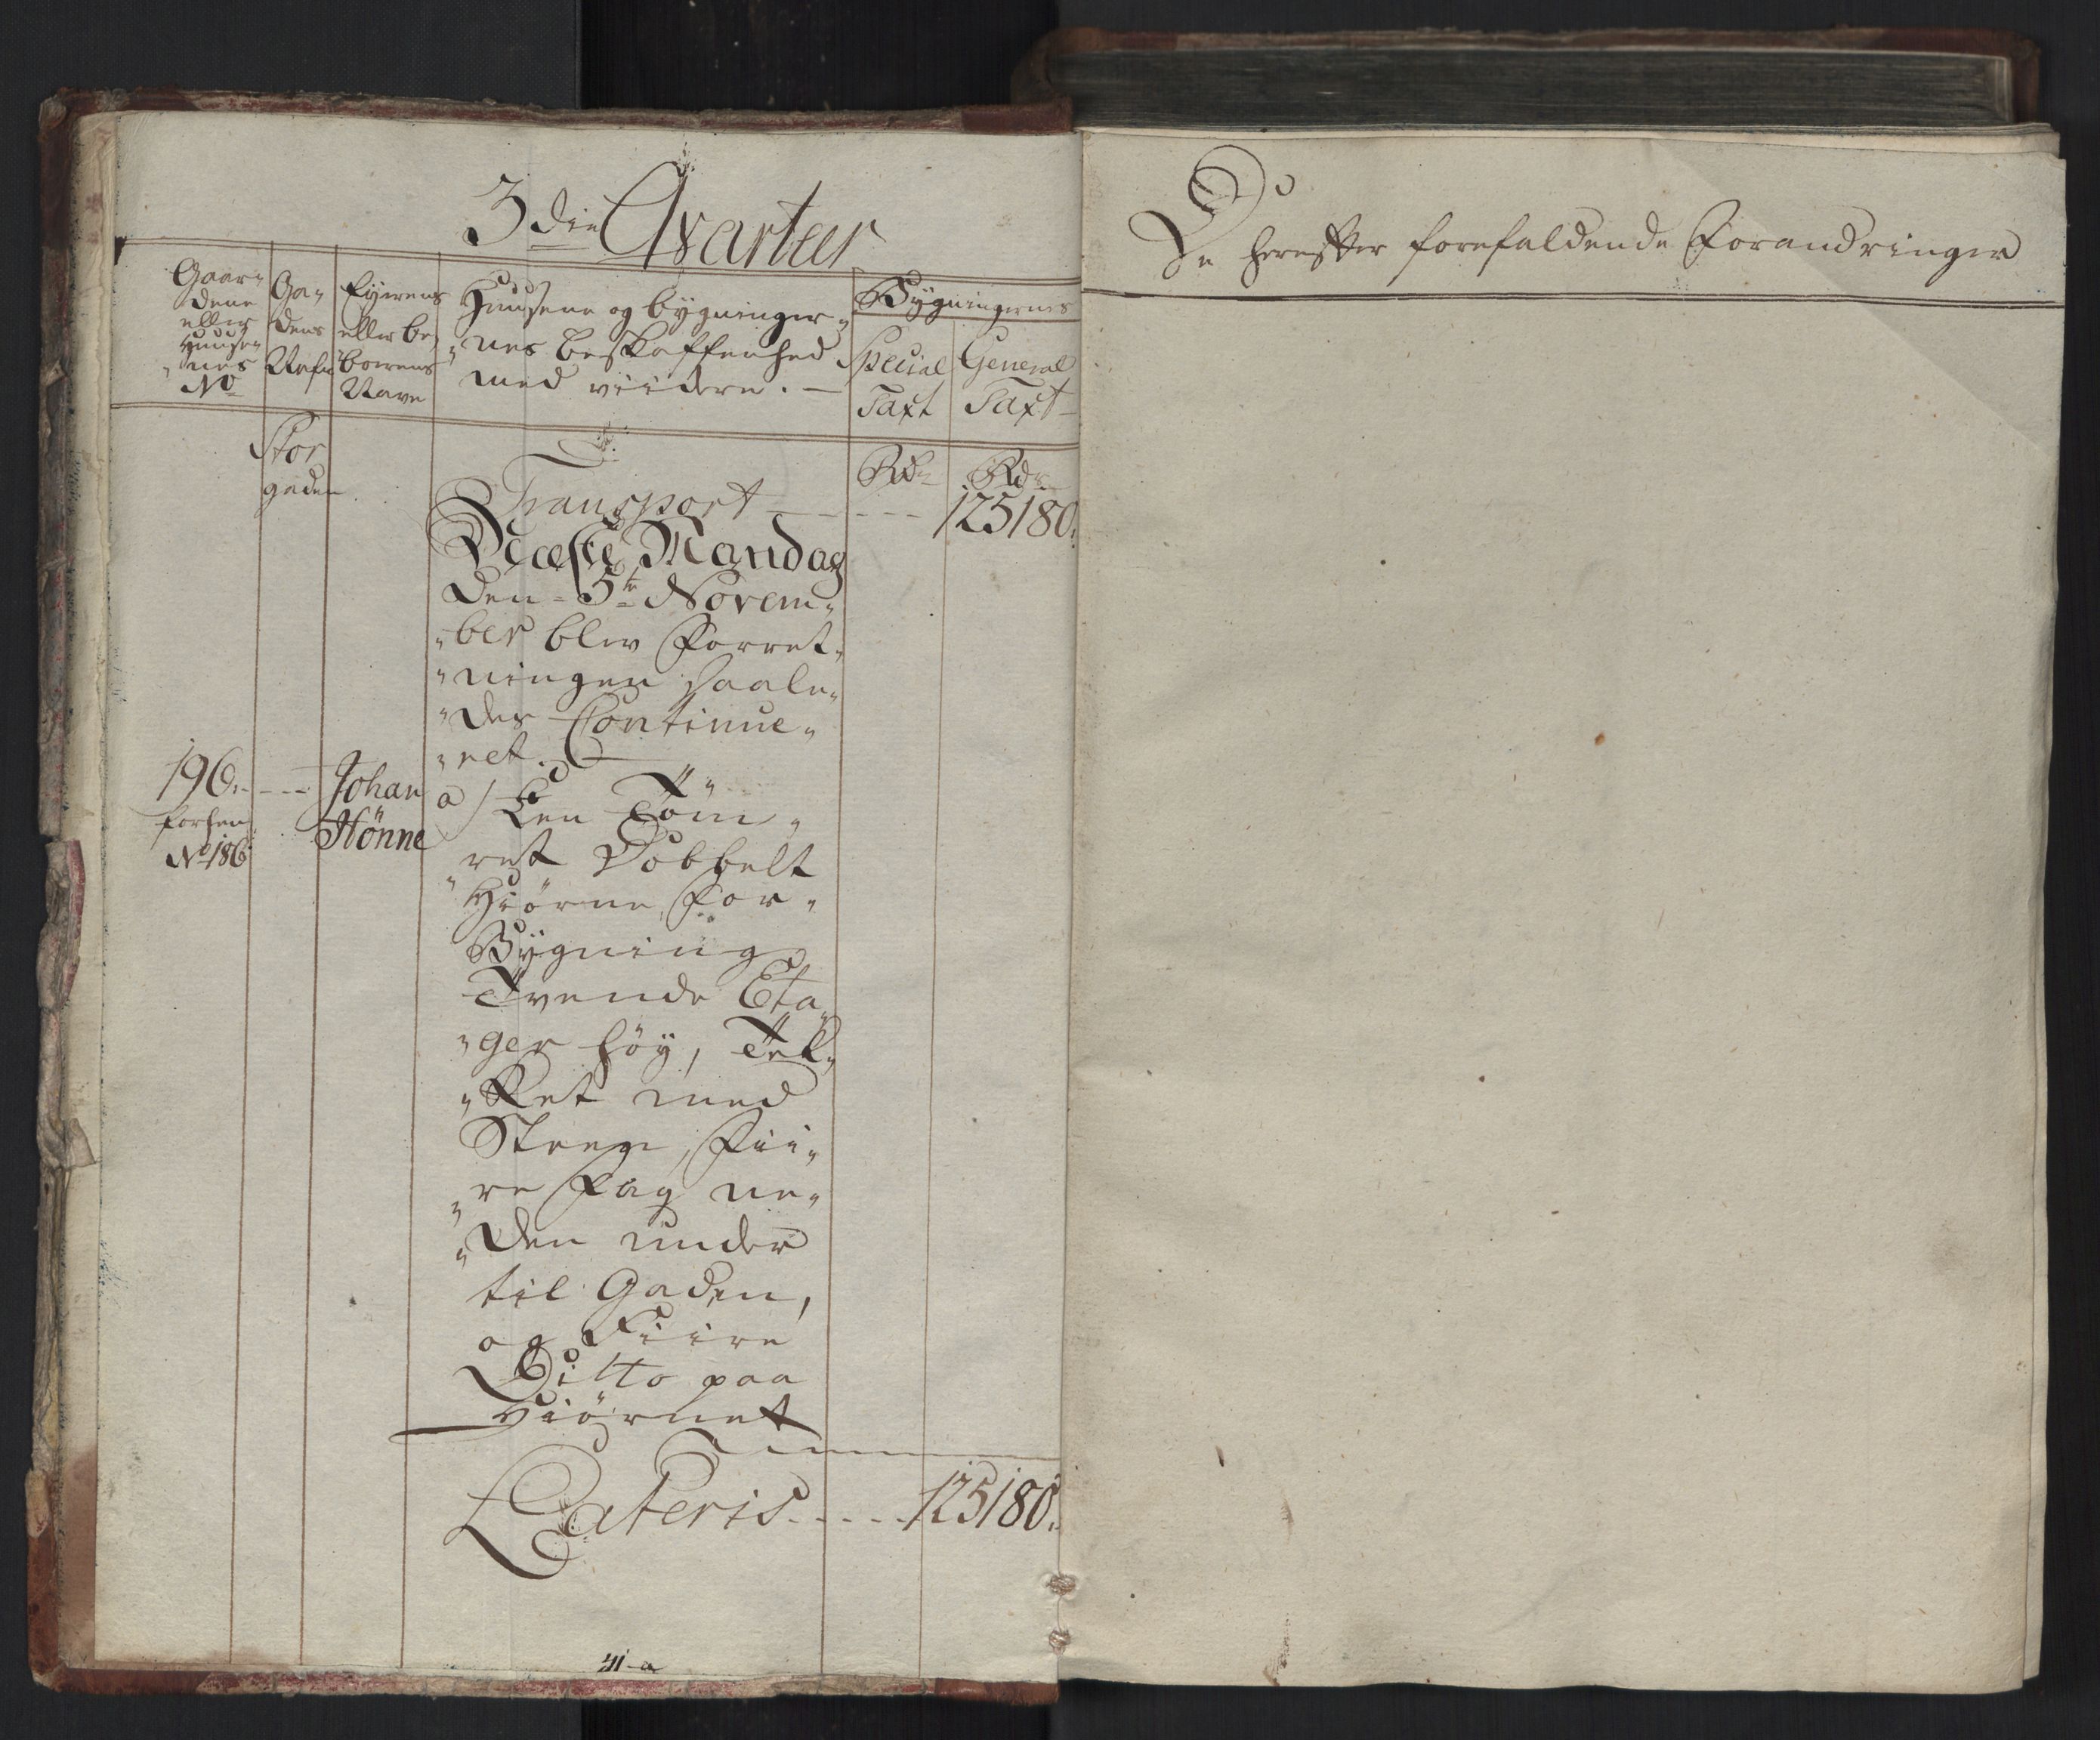 3die Qvarteer
Gaar„
dene
eller
Huuse„
„nes
No
Ga„
dens
Nafn
Eyerens
eller be„
„boerens
Navn
Huusene og bygninger„
„nes beskaffenhed
med viidere. —
Bygningernes
Special
Taxt
General
Taxt
Stor
gaden
Rdr
Rdr
Transport - - - - - 125180.
Næste Mandag
den 5te Novem„
„ber blev Forret„
„ningen saale„
„des Continue„
„ret.
196. - - - Johan
forhen
No 186
Hönne
a) En Töm„
„ret Dobbelt
Hiörne For„
Bygning
Tvende Eta„
„ger höy, Tek„
„ket med
Steen, Fii„
„re Fag ne„
„den under
til Gaden,
og Fiire
Ditto paa
Hiörnet
Lateris - - - - - 125180.
41 a
De herefter forefaldende Forandringer